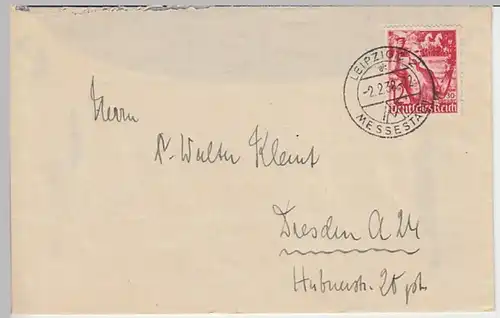 LEIPZIG C 2
-2.2.38.-12
MESSESTADT
Deutsches Reich
Herrn
Dr. Walter Kleint
Dresden A 24
Hübnerstr. 20 pt.